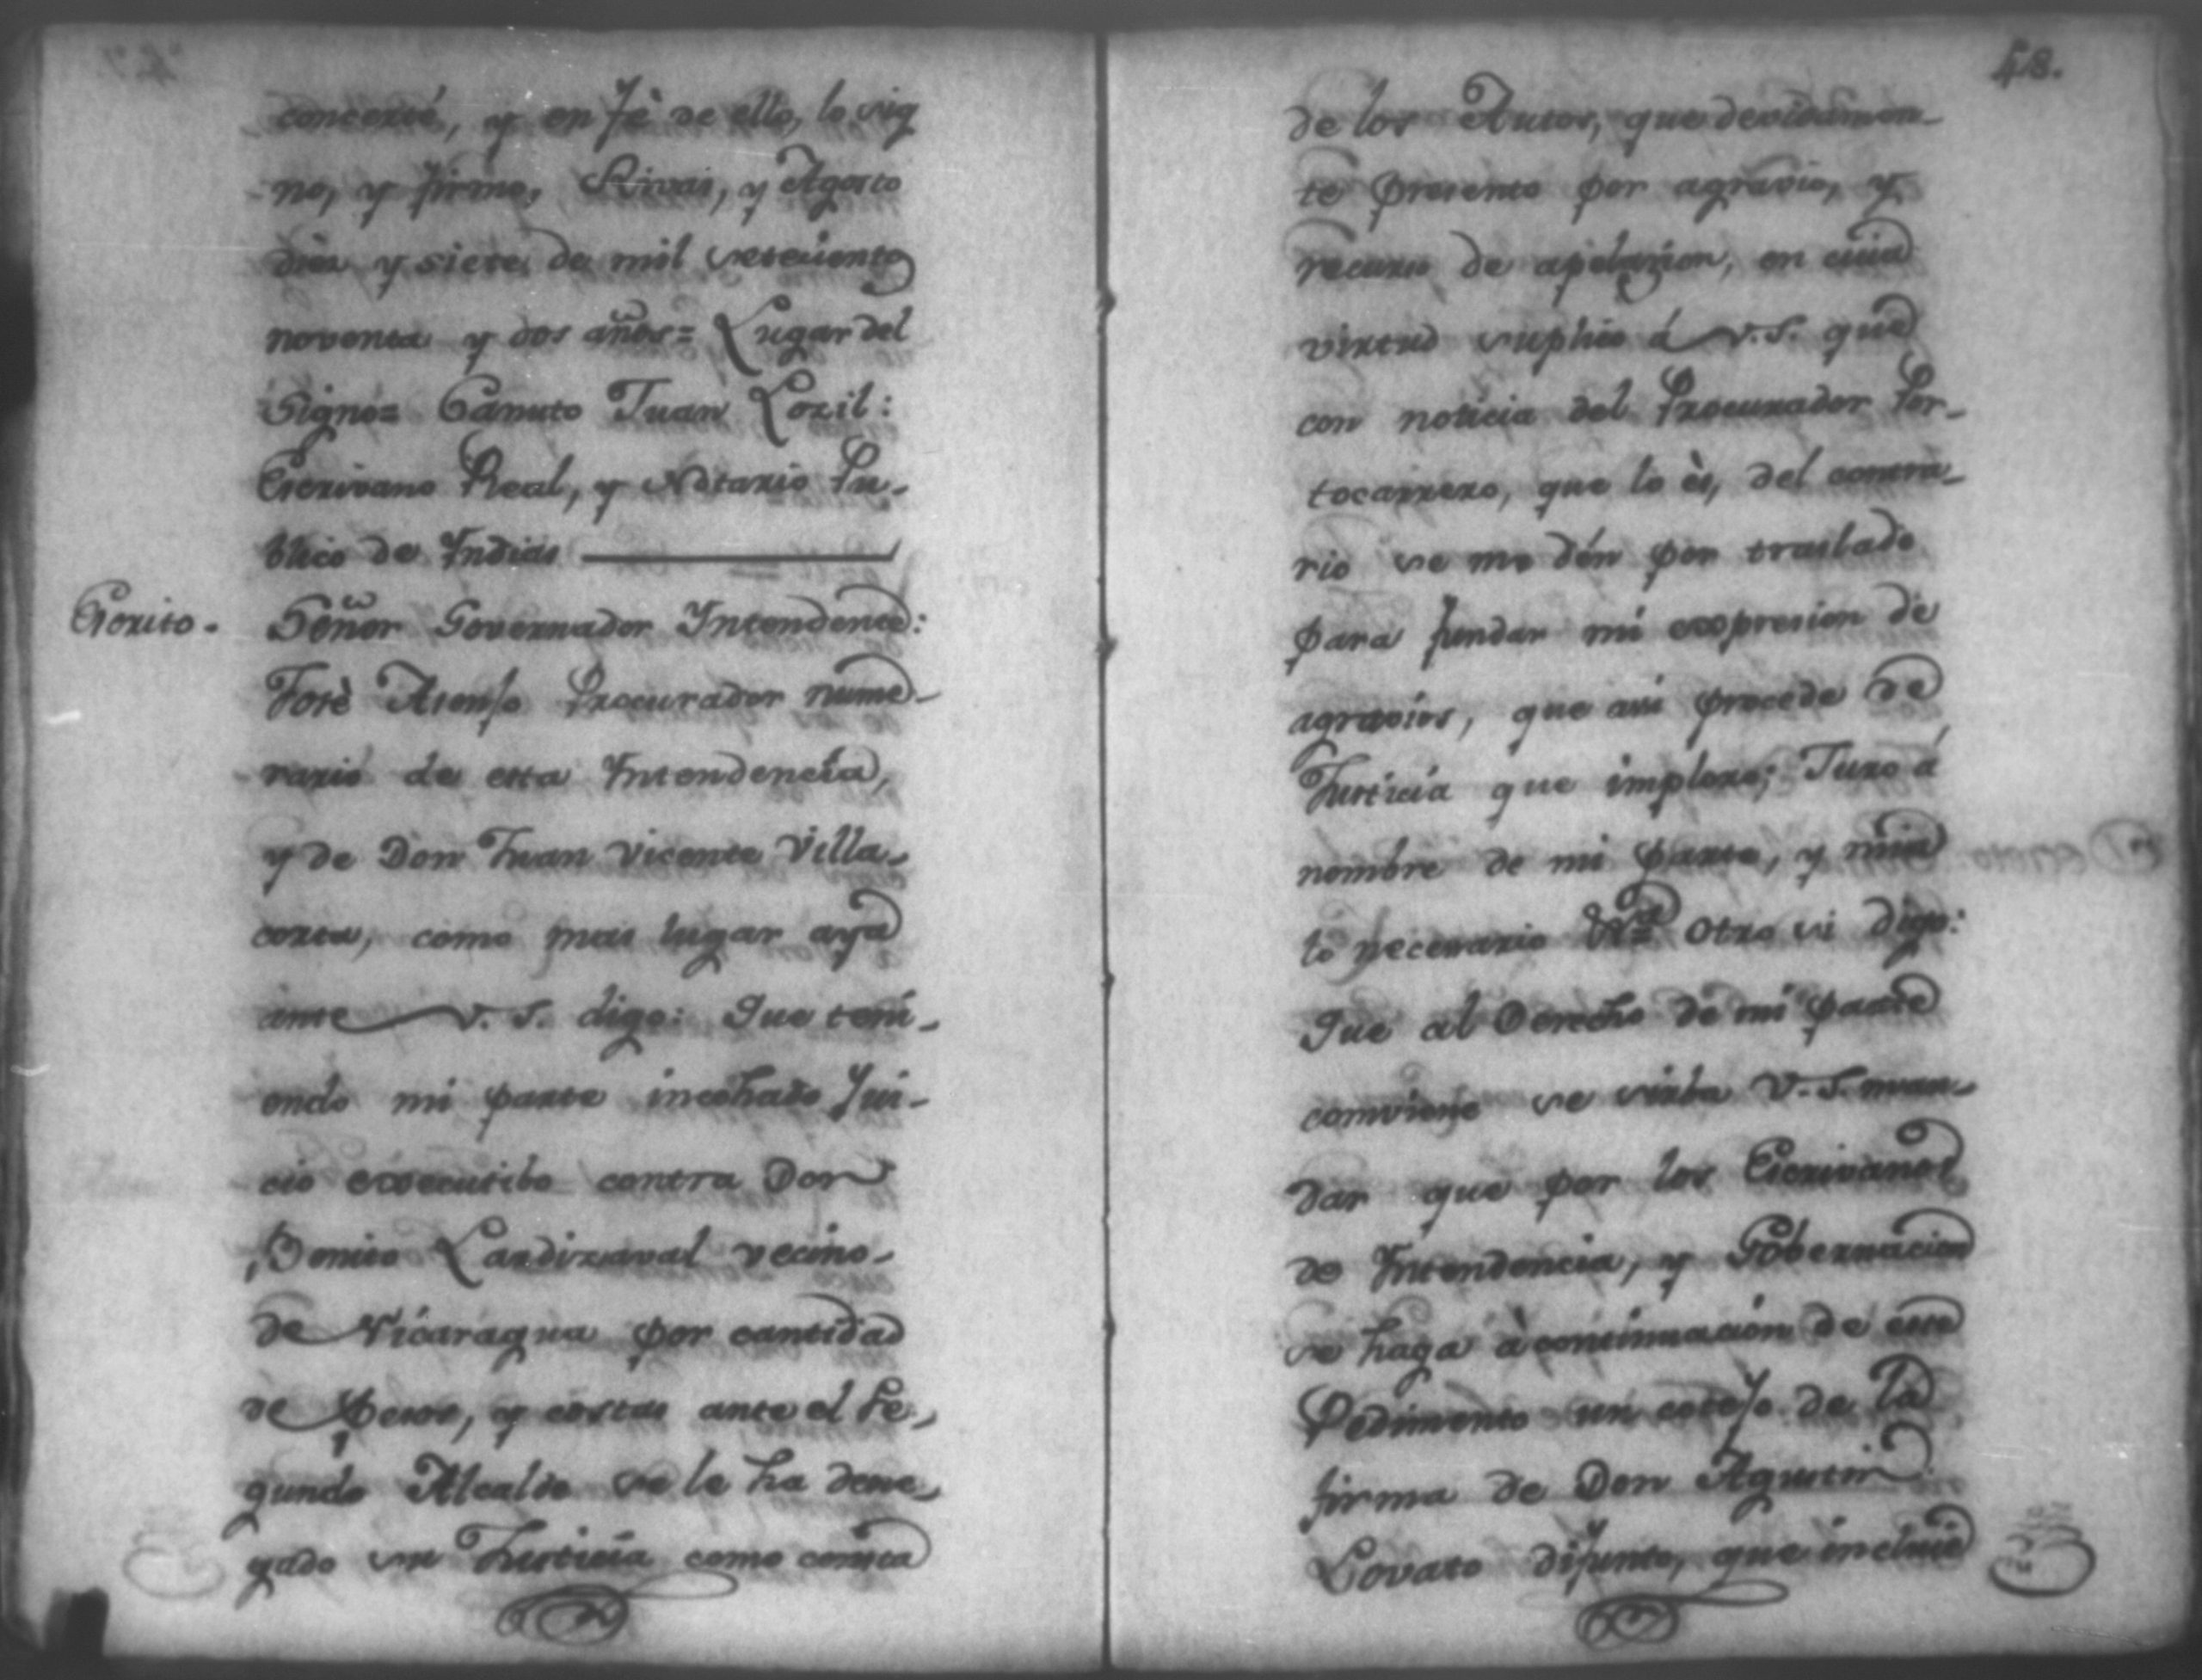 concerté, y en fè de ello, lo sig
no, y firmo, Rivas, y Agosto
diez y siete de mil setecientos
noventa y dos años= Lugar del
Signo= Canuto Juan Loxil:
Escrivano Real, y Notario Pu-
blico de Yndias
Escrito. Señor Governador Yntendente:
José Asenso Procurador nume-
rario de esta Yntendencia,
y de Don Juan Vicente Villa-
corta, como mas lugar aya
ante V. S. digo: Que teni-
endo mi parte incohado Jui-
cio executibo contra Don
Benito Lardizaval vecino
de Nicaragua por cantidad
de Pesos, y costas ante el Se-
gundo Alcalde se le ha dene-
gado su Justicia como consta
48.
de los Autos, que devidamen-
te presento por agravio, y
recurso de apelazion, en cuia
virtud suplico á V. S. que
con noticia del Procurador Por-
tocarrero, que lo ès, del contra-
rio se me dén por traslado
para fundar mi expresion de
agravios, que asi procede de
Justicia que imploro; Juro á
nombre de mi parte, y mia
lo necesario Otro si digo:
Que al Derecho de mi parte
comviene se sirba V. S. man-
dar que por los Escrivanos
de Yntendencia, y Gobernacion
se haga à continuacion de este
Pedimento un cotejo de la
firma de Don Agustin
Lovato difunto, que incluie